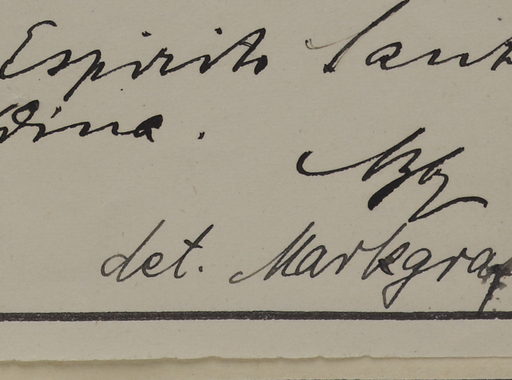 Espirito Sant
dina.
det. Markgraf